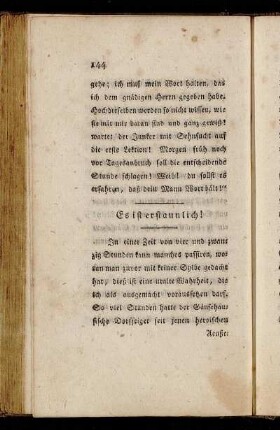 144
gehe; ich muß mein Wort halten, das
ich dem gnädigen Herrn gegeben habe.
Hochdieselben werden so nicht wissen, wie
sie mit mir daran sind und ganz gewiß
wartet der Junker mit Sehnsucht auf
die erste Lektion! Morgen früh noch
vor Tagesanbruch soll die entscheidende
Stunde schlagen! Weib! du sollst es
erfahren, daß dein Mann Wort hält!"
Es ist erstaunlich!
In einer Zeit von vier und zwan
zig Stunden kann manches passiren, wo
ran man zuvor mit keiner Sylbe gedacht
hat, dieß ist eine uralte Wahrheit, die
ich als ausgemacht voraussetzen darf.
So viel Stunden hatte der Gänsehau
sische Dorfgeiger seit jenen heroischen
Aeuße: